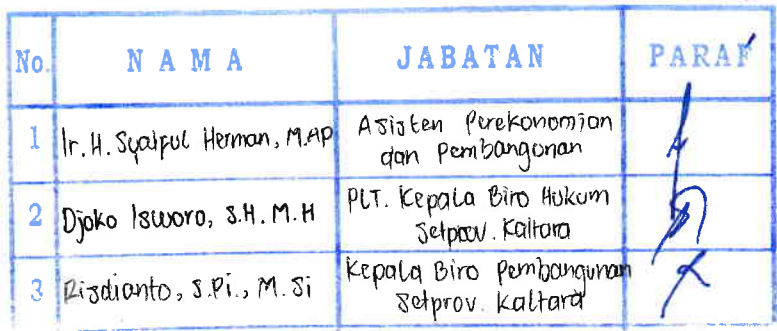 No. N A M A JABATAN PARAF
1 Ir. H. Syaiful Herman, M.AP Asisten Perekonomian
dan Pembangunan
2 Djoko Isworo, S.H. M.H PLT. Kepala Biro Hukum
Setprov. Kaltara
3 Risdianto, S.Pi., M.Si Kepala Biro Pembangunan
Setprov. Kaltara